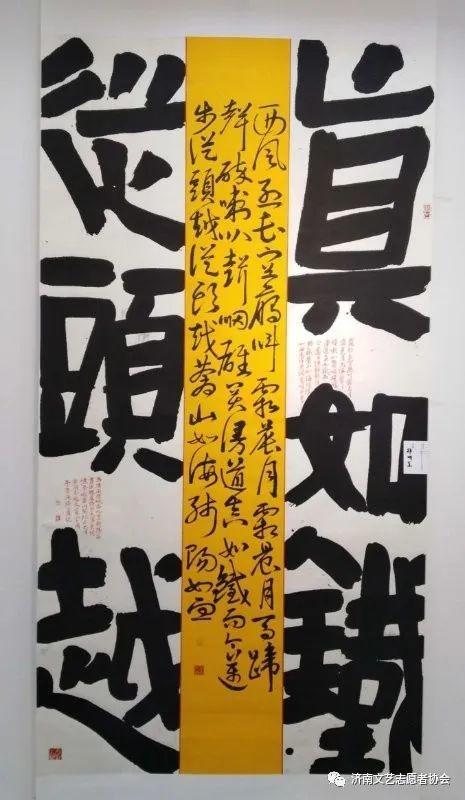 眞如鐵
西風烈長空雁叫霜晨月霜晨月馬蹄
聲碎喇叭聲咽雄關漫道真如鐵而今邁
步從頭越從頭越蒼山如海殘陽如血
從頭越
济南文艺志愿者协会